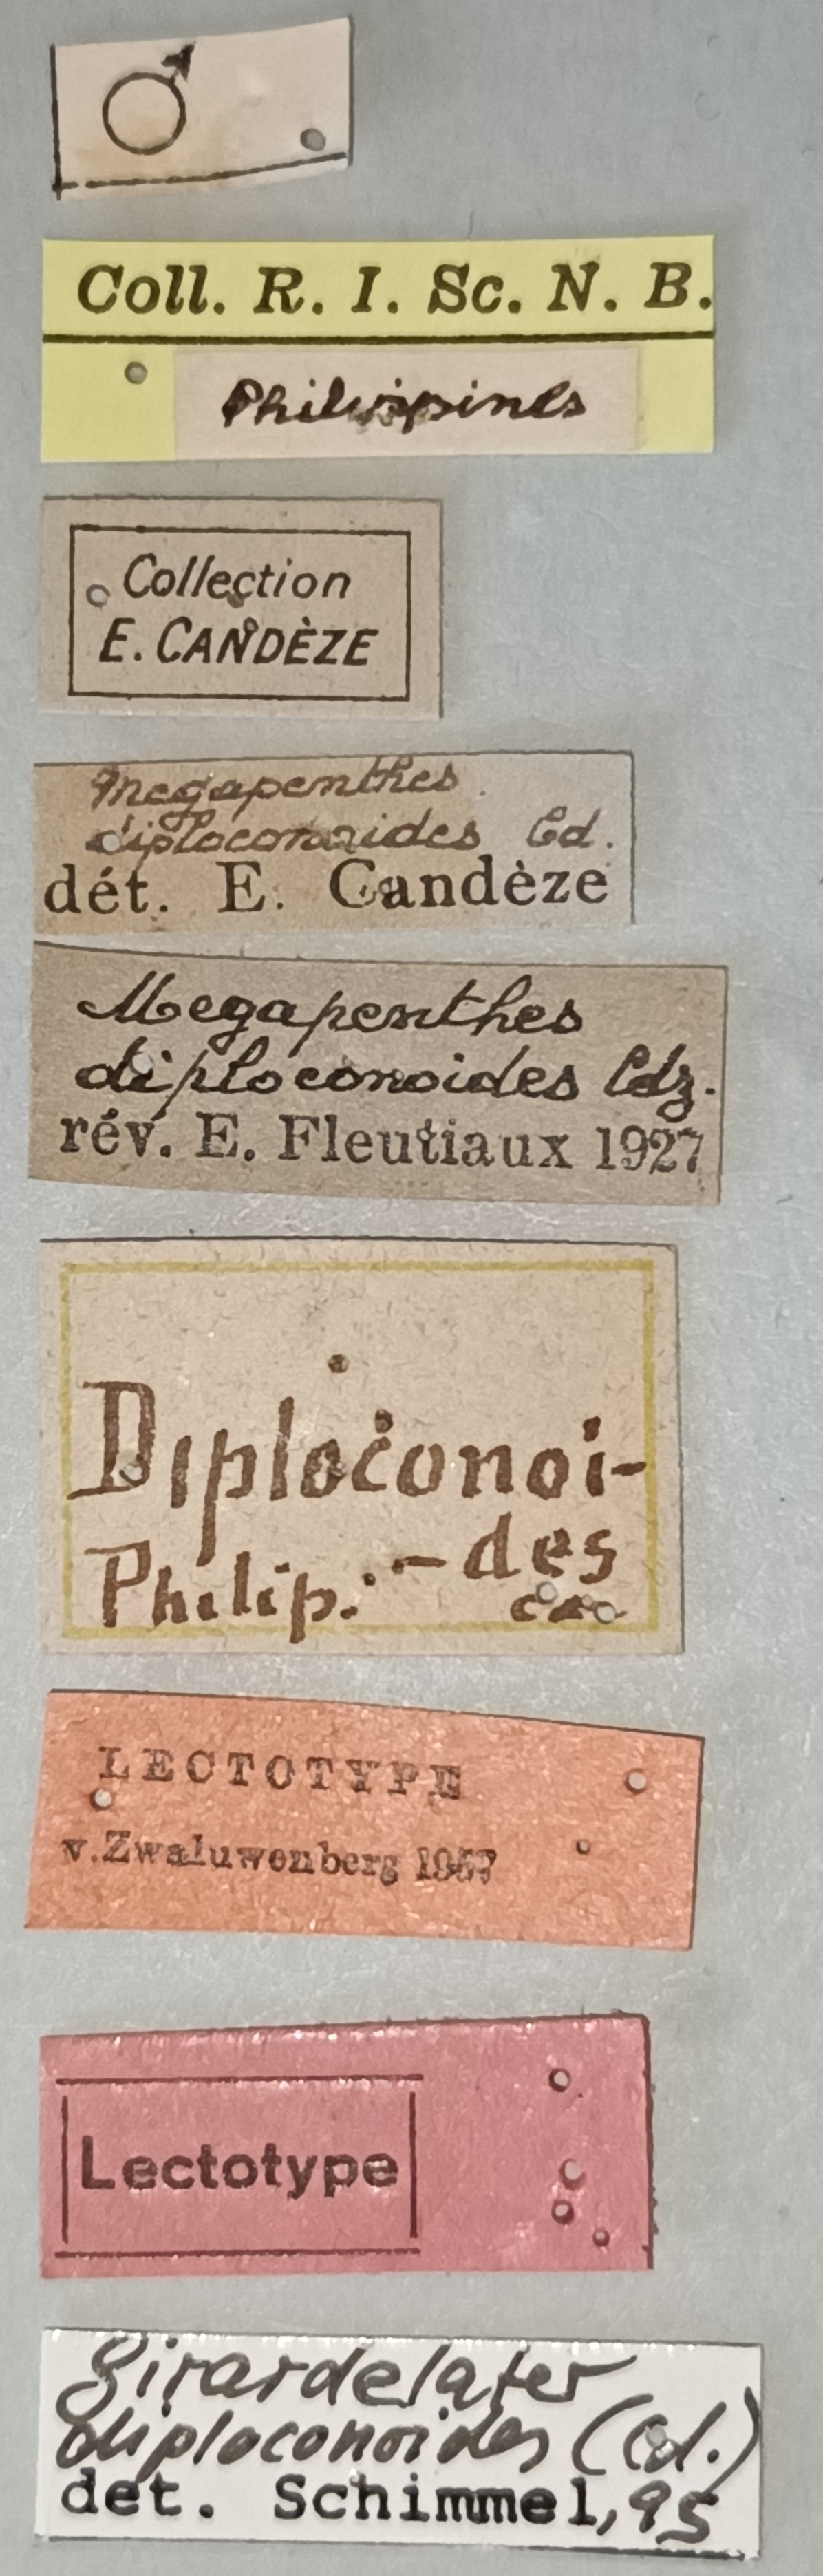 ♂
Coll. R. I. Sc. N. B.
Philippines
Collection
E. CANDÈZE
Megapenthes
diploconoides Cd.
dét. E. Candèze
Megapenthes
diploconoides Cdz.
rév. E. Fleutiaux 1927
Diploconoi-
-des
Philip.
LECTOTYPE
v.Zwaluwenberg 1957
Lectotype
Girardelater
diploconoides (Cd.)
det. Schimmel, 95